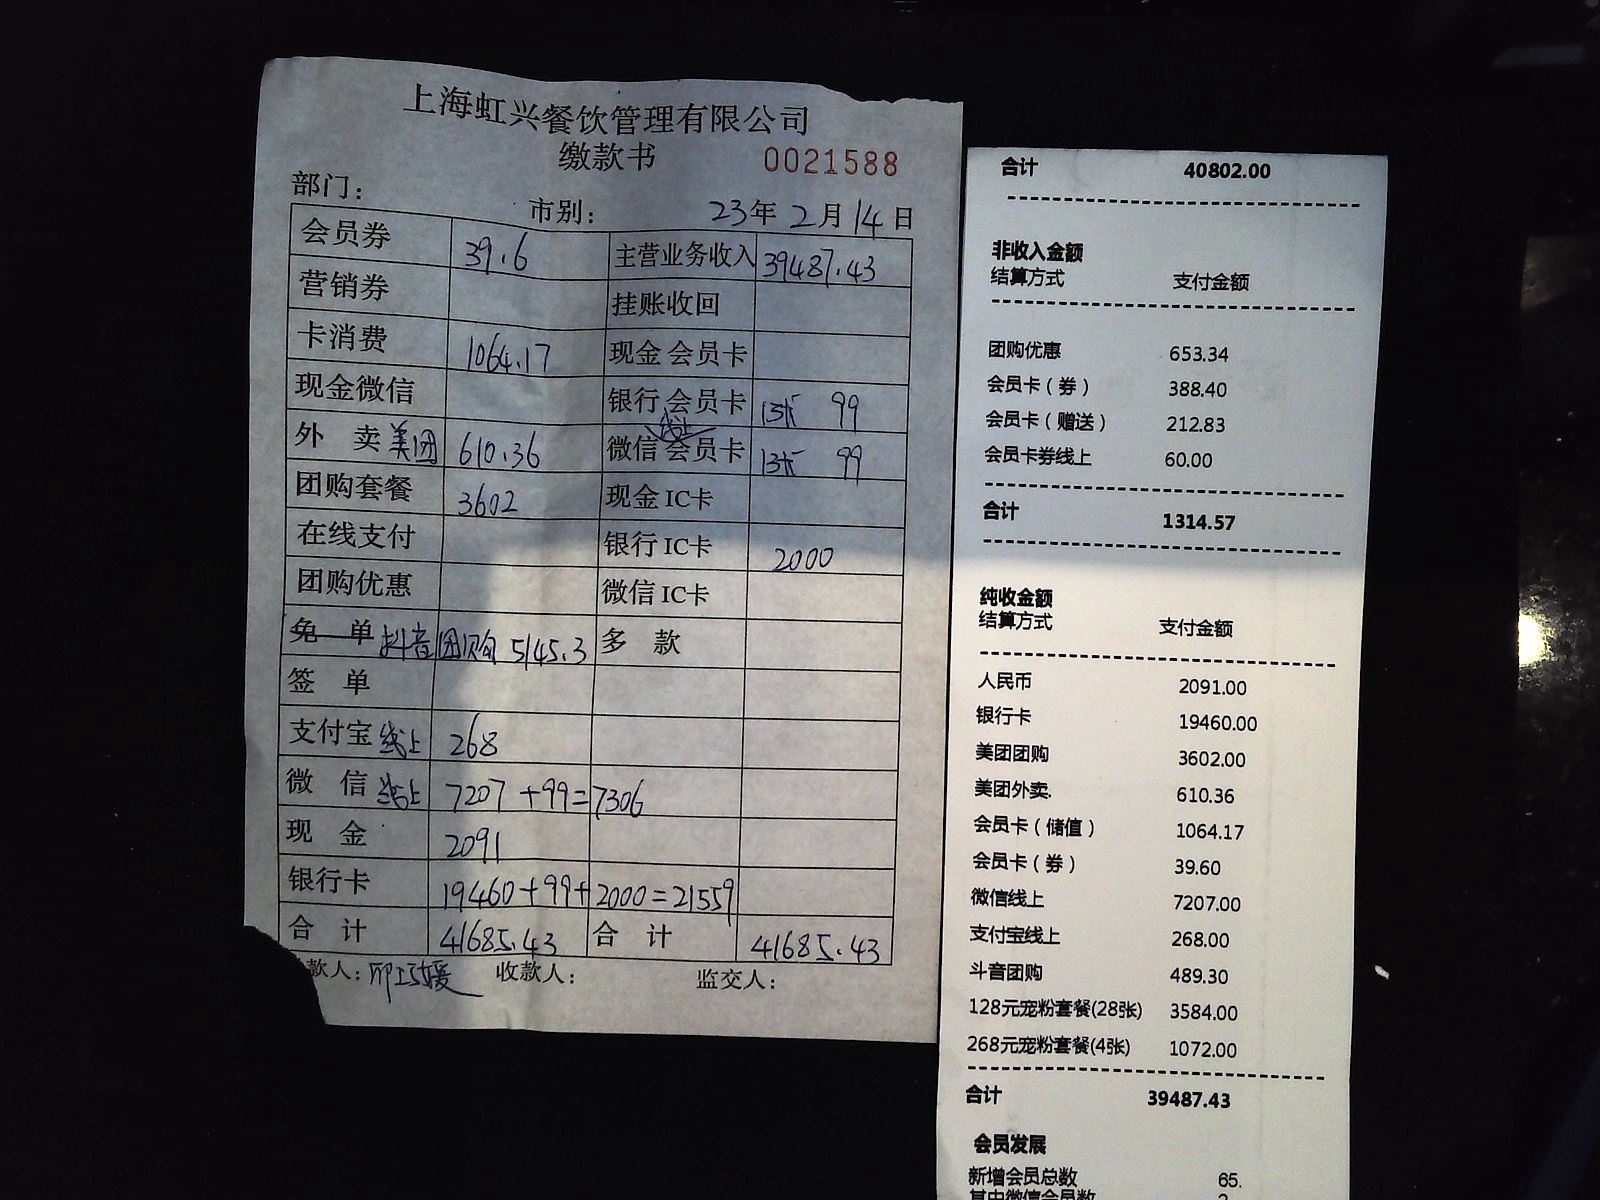 上海虹兴餐饮管理有限公司
缴款书 0021588
部门： 市别： 23年 2月 14日
会员券 39.6 主营业务收入 39487.43
营销券 挂账收回
卡消费 1064.17 现金会员卡
现金微信 银行会员卡 13张 99
外 卖 美团 610.36 微信 线上 会员卡 13张 99
团购套餐 3602 现金IC卡
在线支付 银行IC卡 2000
团购优惠 微信IC卡
免 单 抖音团购 5145.3 多 款
签 单
支付宝 线上 268
微 信 线上 7207+99=7306
现 金 2091
银行卡 19460+99+2000=21559
合 计 41685.43 合 计 41685.43
款人： 收款人： 监交人：
合计 40802.00
非收入金额
结算方式 支付金额
团购优惠 653.34
会员卡（券） 388.40
会员卡（赠送） 212.83
会员卡券线上 60.00
合计 1314.57
纯收金额
结算方式 支付金额
人民币 2091.00
银行卡 19460.00
美团团购 3602.00
美团外卖. 610.36
会员卡（储值） 1064.17
会员卡（券） 39.60
微信线上 7207.00
支付宝线上 268.00
斗音团购 489.30
128元宠粉套餐(28张) 3584.00
268元宠粉套餐(4张) 1072.00
合计 39487.43
会员发展
新增会员总数 65.
其中微信会员数